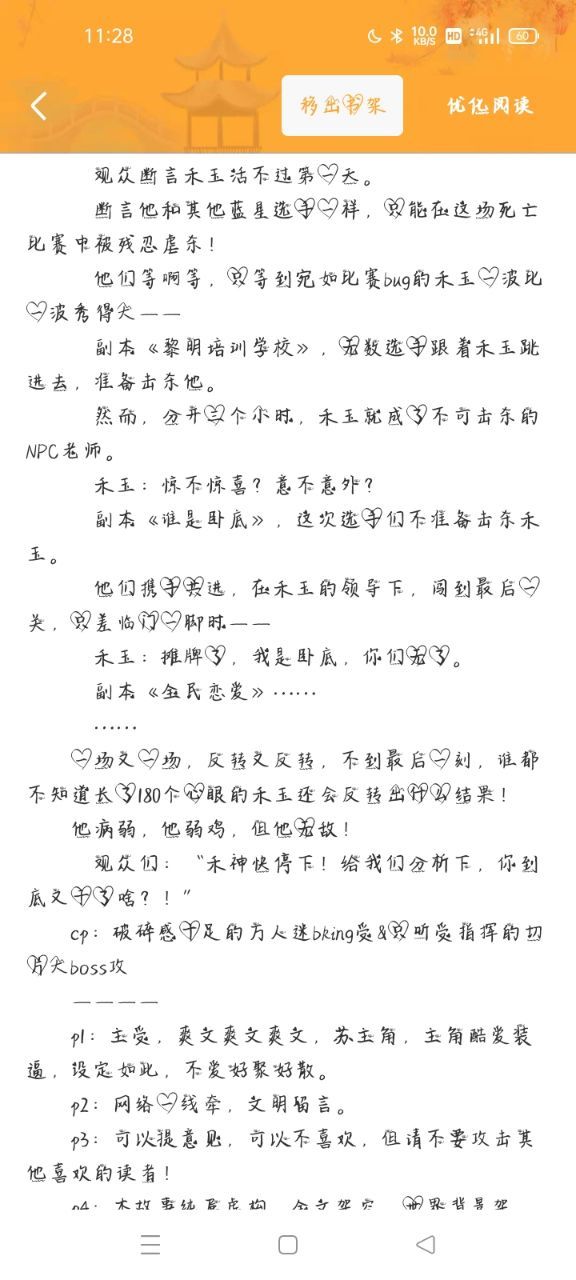 11:28
10.0
KB/S
HD
4G
60
移出书架
优化阅读
观众断言禾玉活不过第一天。
断言他和其他蓝星选手一样，只能在这场死亡
比赛中被残忍虐杀！
他们等啊等，只等到宛如比赛bug的禾玉一波比
一波秀得天——
副本《黎明培训学校》，无数选手跟着禾玉跳
进去，准备击杀他。
然而，分开三个小时，禾玉就成了不可击杀的
NPC老师。
禾玉：惊不惊喜？意不意外？
副本《谁是卧底》，这次选手们不准备击杀禾
玉。
他们携手共进，在禾玉的领导下，闯到最后一
关，只差临门一脚时——
禾玉：摊牌了，我是卧底，你们无了。
副本《全民恋爱》……
……
一场又一场，反转又反转，不到最后一刻，谁都
不知道长了180个心眼的禾玉还会反转出什么结果！
他病弱，他弱鸡，但他无敌！
观众们：“禾神快停下！给我们分析下，你到
底又干了啥？！”
cp：破碎感十足的万人迷bking受&只听受指挥的切
片大boss攻
————
p1：主受，爽文爽文爽文，苏主角，主角酷爱装
逼，设定如此，不爱好聚好散。
p2：网络一线牵，文明留言。
p3：可以提意见，可以不喜欢，但请不要攻击其
他喜欢的读者！
p4：本故事纯属虚构，全文架空，世界背景架